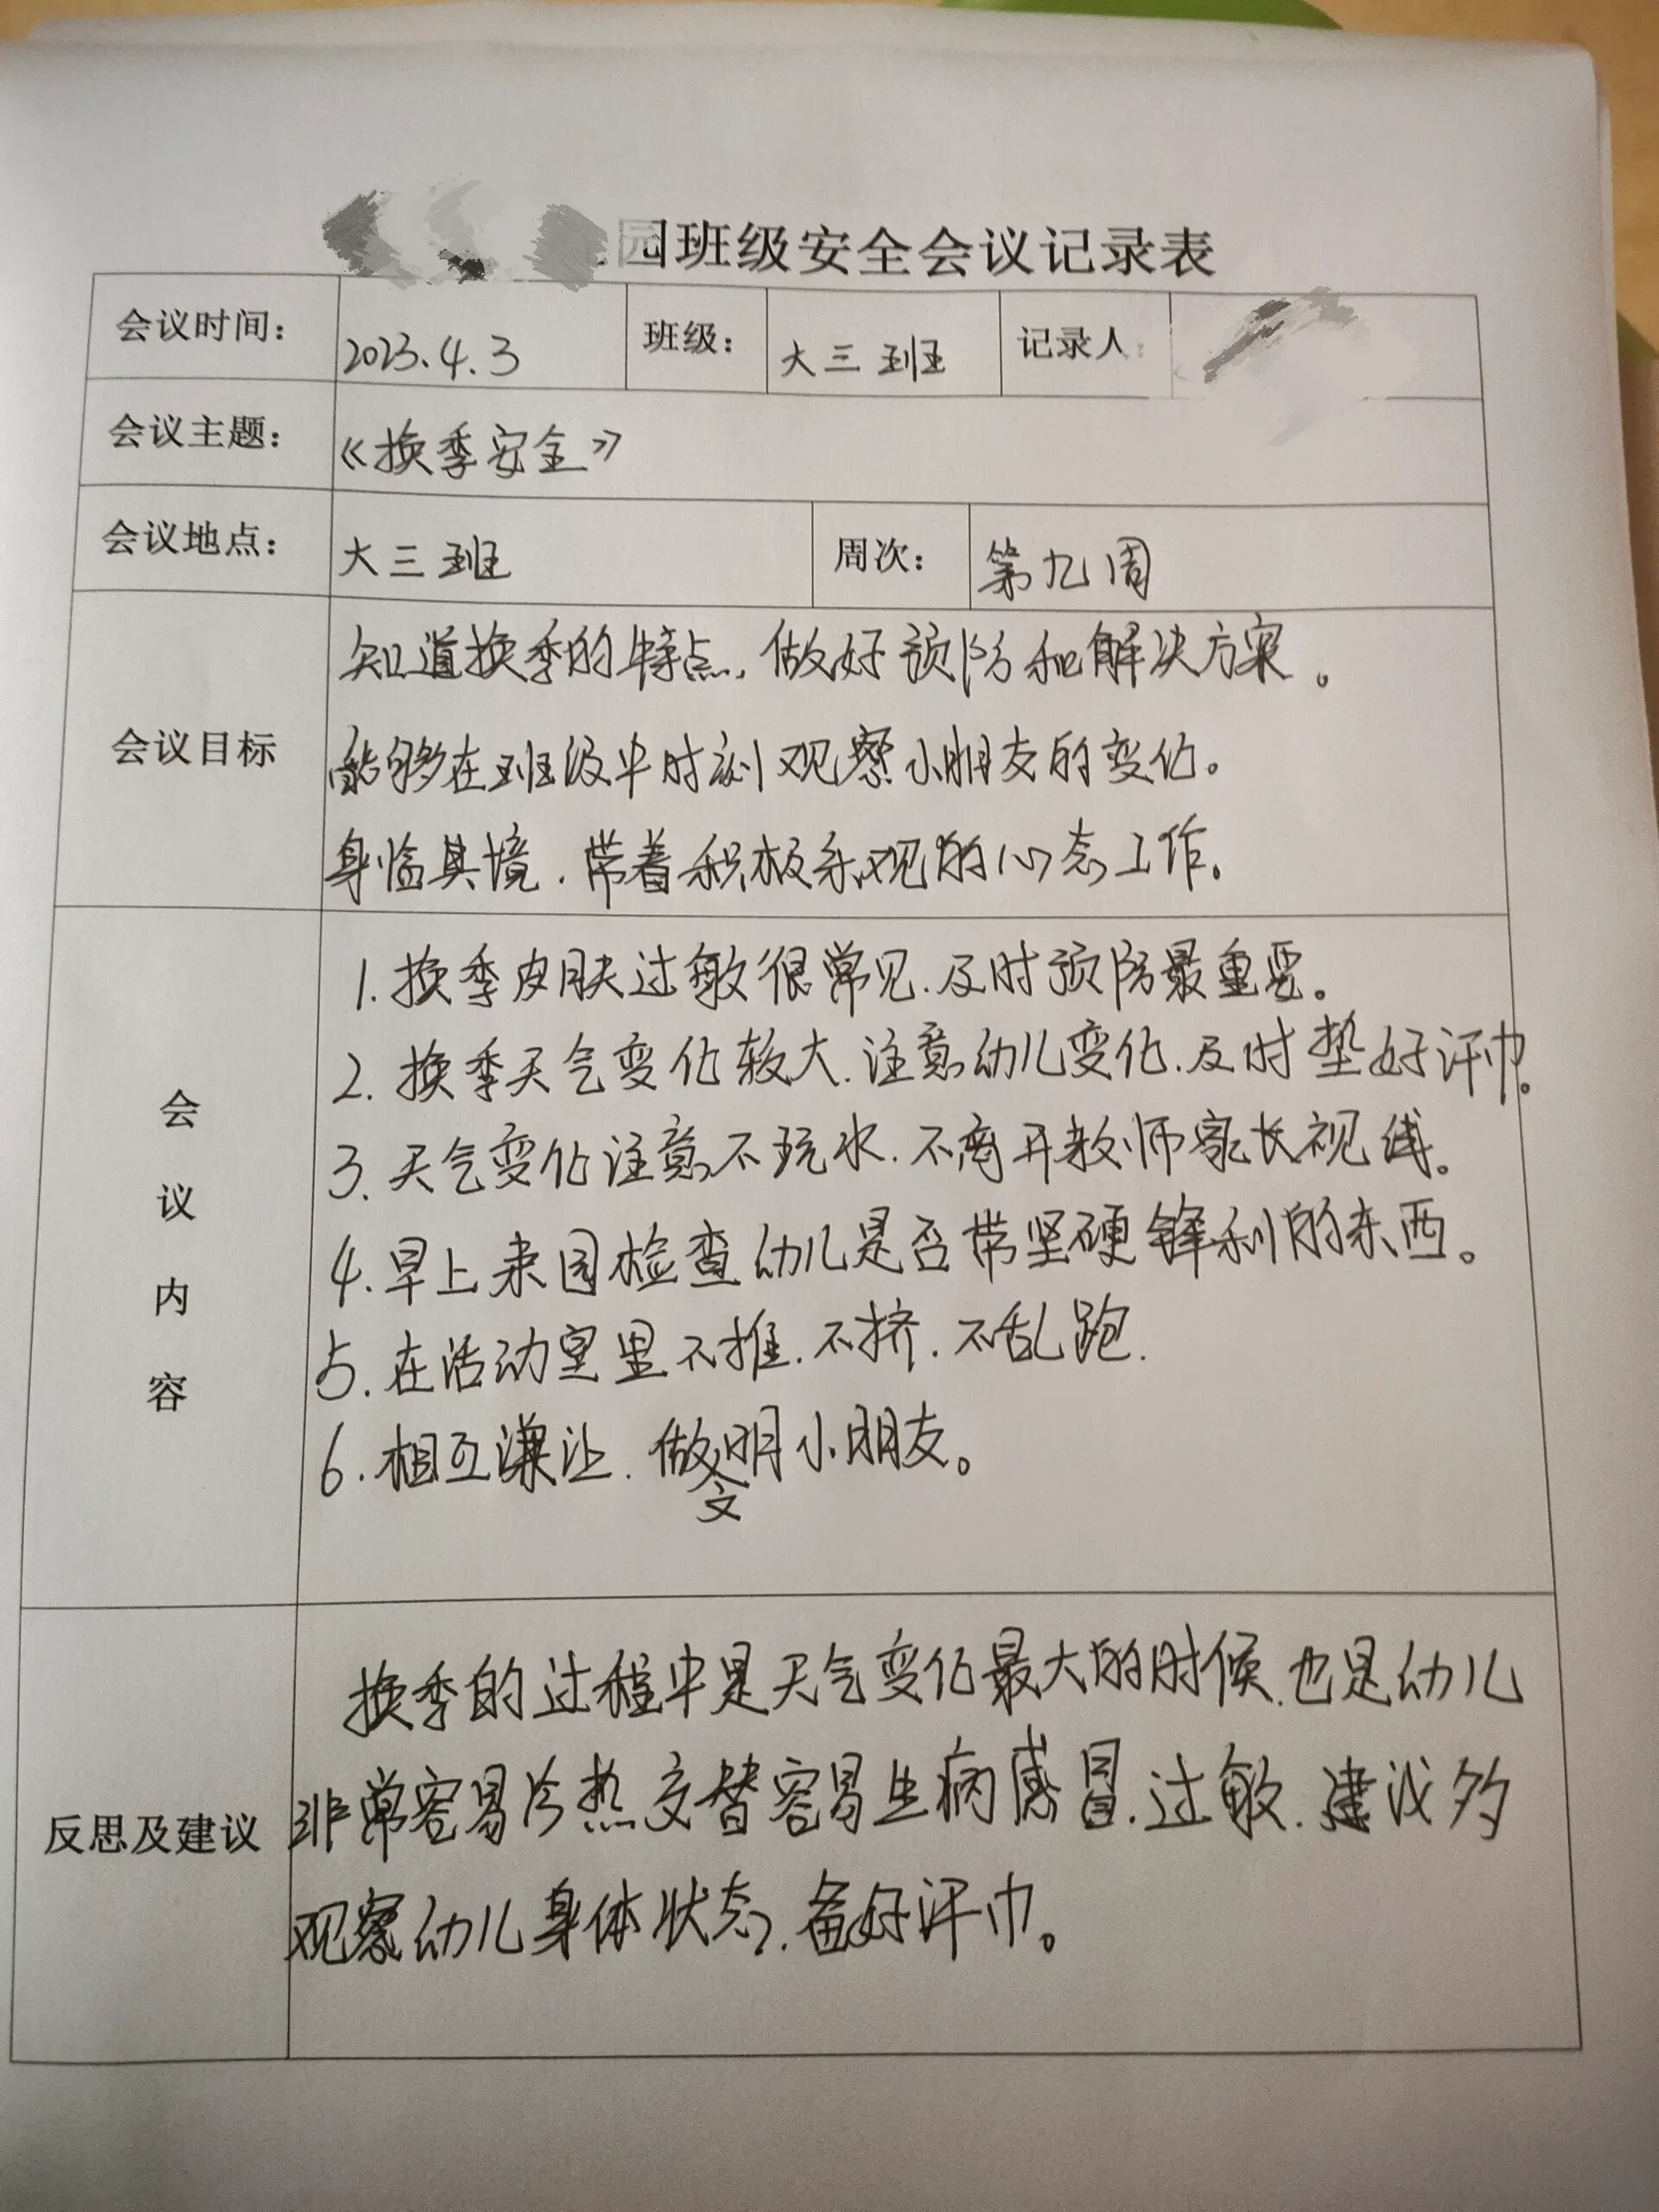 园班级安全会议记录表
会议时间： 2023.4.3 班级： 大三班 记录人：
会议主题： 《换季安全》
会议地点： 大三班 周次： 第九周
会议目标
知道换季的特点，做好预防和解决方案。
能够在班级中时刻观察小朋友的变化。
身临其境，带着积极乐观的心态工作。
会议内容
1.换季皮肤过敏很常见，及时预防最重要。
2.换季天气变化较大，注意幼儿变化，及时垫好汗巾。
3.天气变化注意不玩水，不离开教师家长视线。
4.早上来园检查幼儿是否带坚硬锋利的东西。
5.在活动室里不推，不挤，不乱跑.
6.相互谦让，做文明小朋友。
反思及建议
换季的过程中是天气变化最大的时候，也是幼儿
非常容易冷热交替容易生病感冒，过敏，建议多
观察幼儿身体状态，备好汗巾。